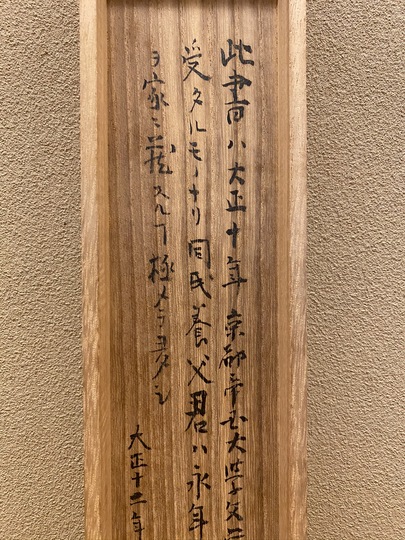 此書ハ大正十年京都帝国大学文
受タルモノナリ同氏養父君ハ永年
ヲ家ニ蔵スルヿ極メテ
大正十二年